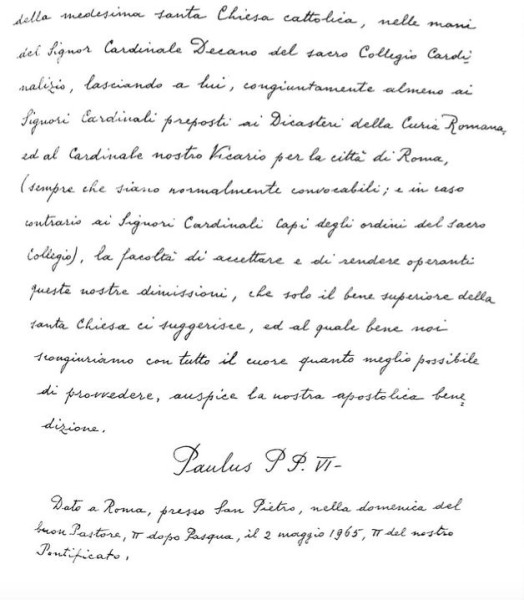 della medesima santa Chiesa cattolica, nelle mani
del Signor Cardinale Decano del sacro Collegio Cardi=
nalizio, lasciando a lui, congiuntamente almeno ai
Signori Cardinali preposti ai Dicasteri della Curia Romana,
ed al Cardinale nostro Vicario per la città di Roma,
(sempre che siano normalmente convocabili; e in caso
contrario ai Signori Cardinali Capi degli ordini del sacro
Collegio), la facoltà di accettare e di rendere operanti
queste nostre dimissioni, che solo il bene superiore della
santa Chiesa ci suggerisce, ed al quale bene noi
scongiuriamo con tutto il cuore quanto meglio possibile
di provvedere, auspice la nostra apostolica bene=
dizione.
Paulus P P. VI-
Dato a Roma, presso San Pietro, nella domenica del
buon Pastore, II dopo Pasqua, il 2 maggio 1965, II del nostro
Pontificato.